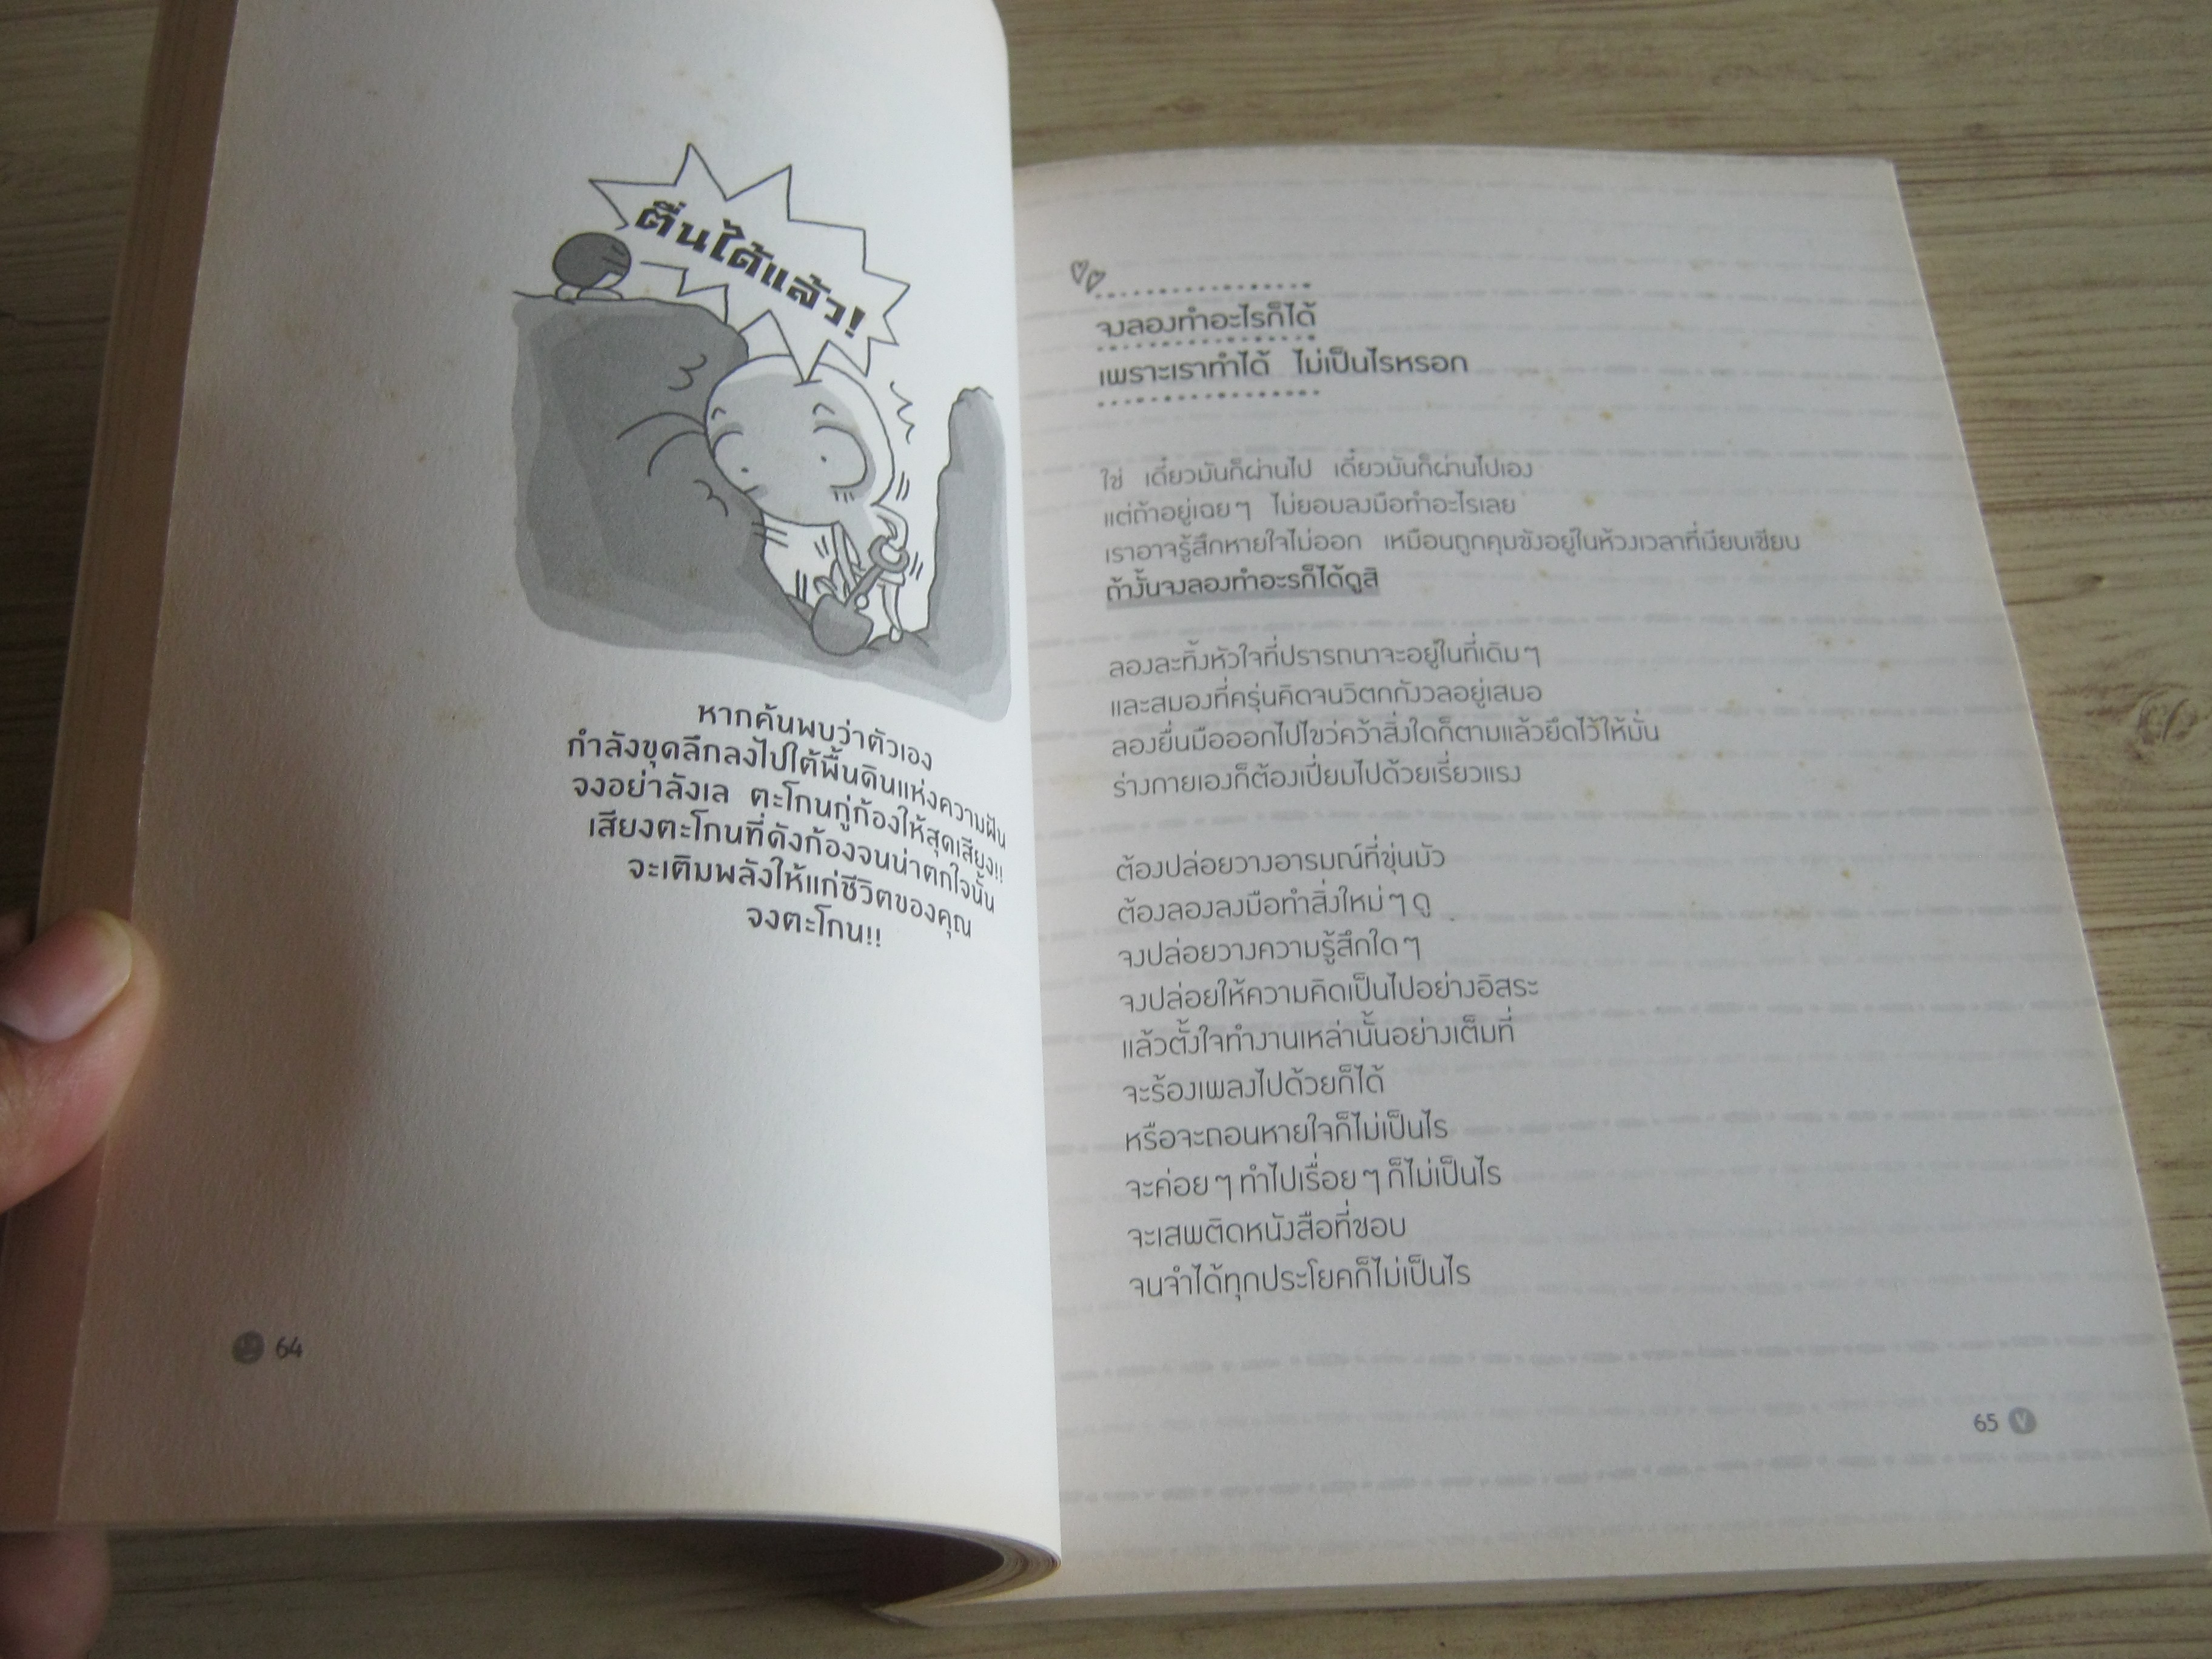 ตื่นได้แล้ว!
หากค้นพบว่าตัวเอง
กำลังขุดลึกลงไปใต้พื้นดินแห่งความฝัน
จงอย่าลังเล ตะโกนกู่ก้องให้สุดเสียง!!
เสียงตะโกนที่ดังก้องจนน่าตกใจนั้น
จะเติมพลังให้แก่ชีวิตของคุณ
จงตะโกน!!
64
จงลองทำอะไรก็ได้
เพราะเราทำได้ ไม่เป็นไรหรอก
ใช่ เดี๋ยวมันก็ผ่านไป เดี๋ยวมันก็ผ่านไปเอง
แต่ถ้าอยู่เฉยๆ ไม่ยอมลงมือทำอะไรเลย
เราอาจรู้สึกหายใจไม่ออก เหมือนถูกคุมขังอยู่ในห้วงเวลาที่เงียบเชียบ
ถ้างั้นจงลองทำอะรก็ได้ดูสิ
ลองละทิ้งหัวใจที่ปรารถนาจะอยู่ในที่เดิมๆ
และสมองที่ครุ่นคิดจนวิตกกังวลอยู่เสมอ
ลองยื่นมือออกไปไขว่คว้าสิ่งใดก็ตามแล้วยึดไว้ให้มั่น
ร่างกายเองก็ต้องเปี่ยมไปด้วยเรี่ยวแรง
ต้องปล่อยวางอารมณ์ที่ขุ่นมัว
ต้องลองลงมือทำสิ่งใหม่ๆ ดู
จงปล่อยวางความรู้สึกใดๆ
จงปล่อยให้ความคิดเป็นไปอย่างอิสระ
แล้วตั้งใจทำงานเหล่านั้นอย่างเต็มที่
จะร้องเพลงไปด้วยก็ได้
หรือจะถอนหายใจก็ไม่เป็นไร
จะค่อยๆ ทำไปเรื่อยๆ ก็ไม่เป็นไร
จะเสพติดหนังสือที่ชอบ
จนจำได้ทุกประโยคก็ไม่เป็นไร
65